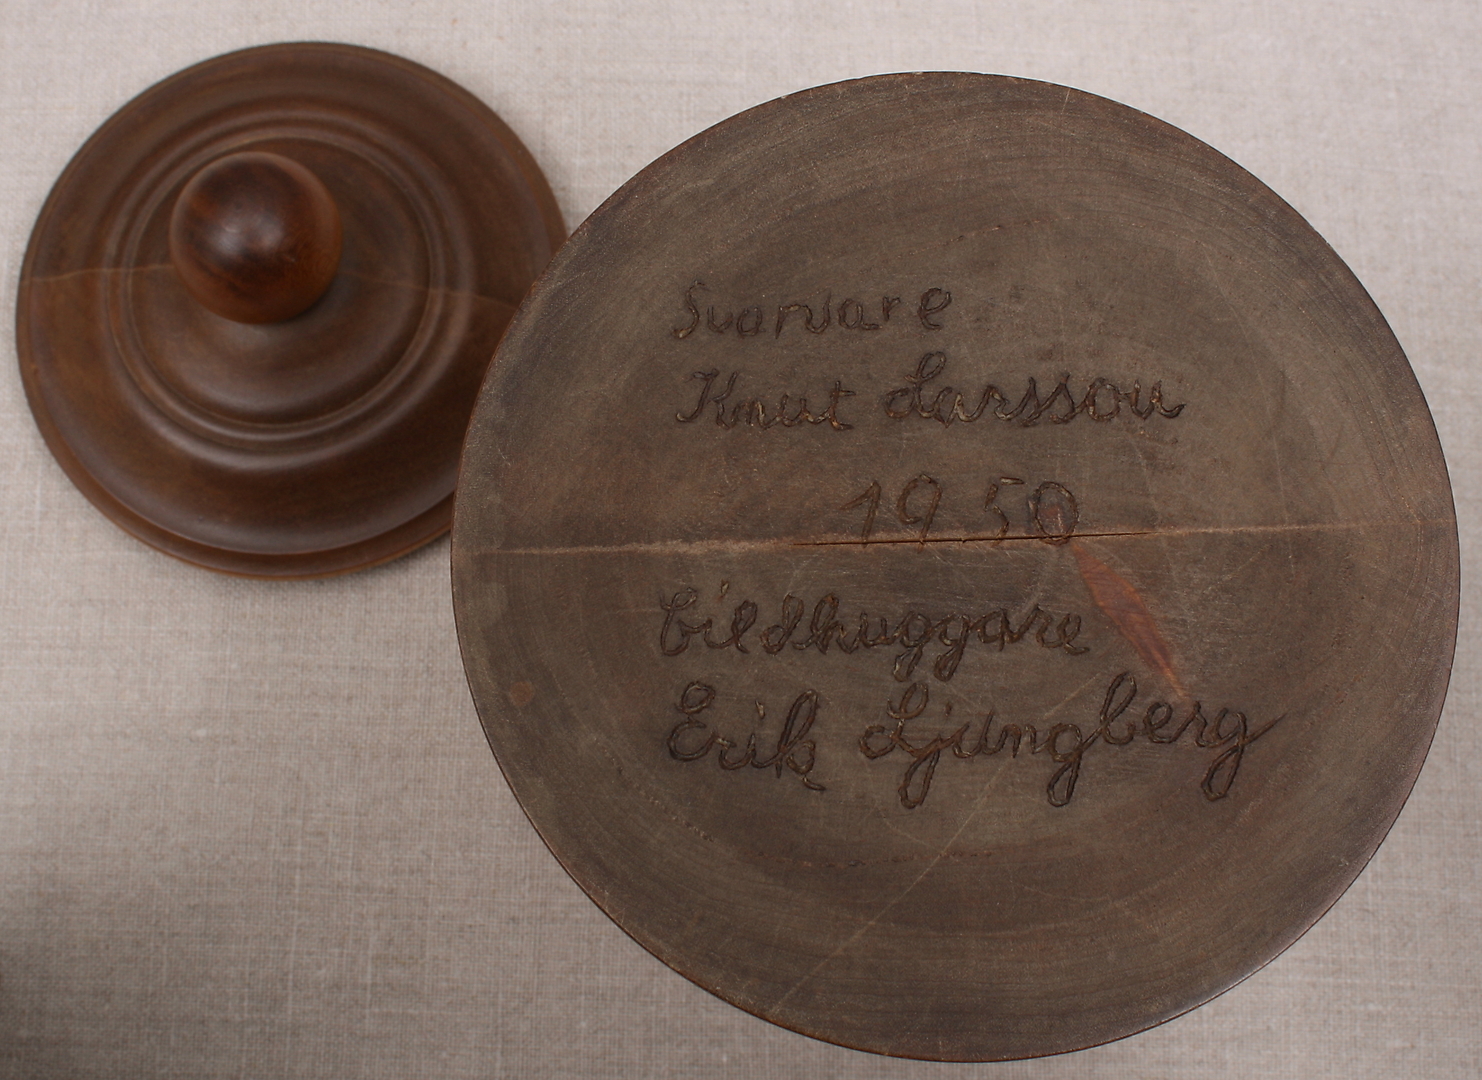 Svarvare
Knut Larsson
1950
bildhuggare
Erik Ljungberg